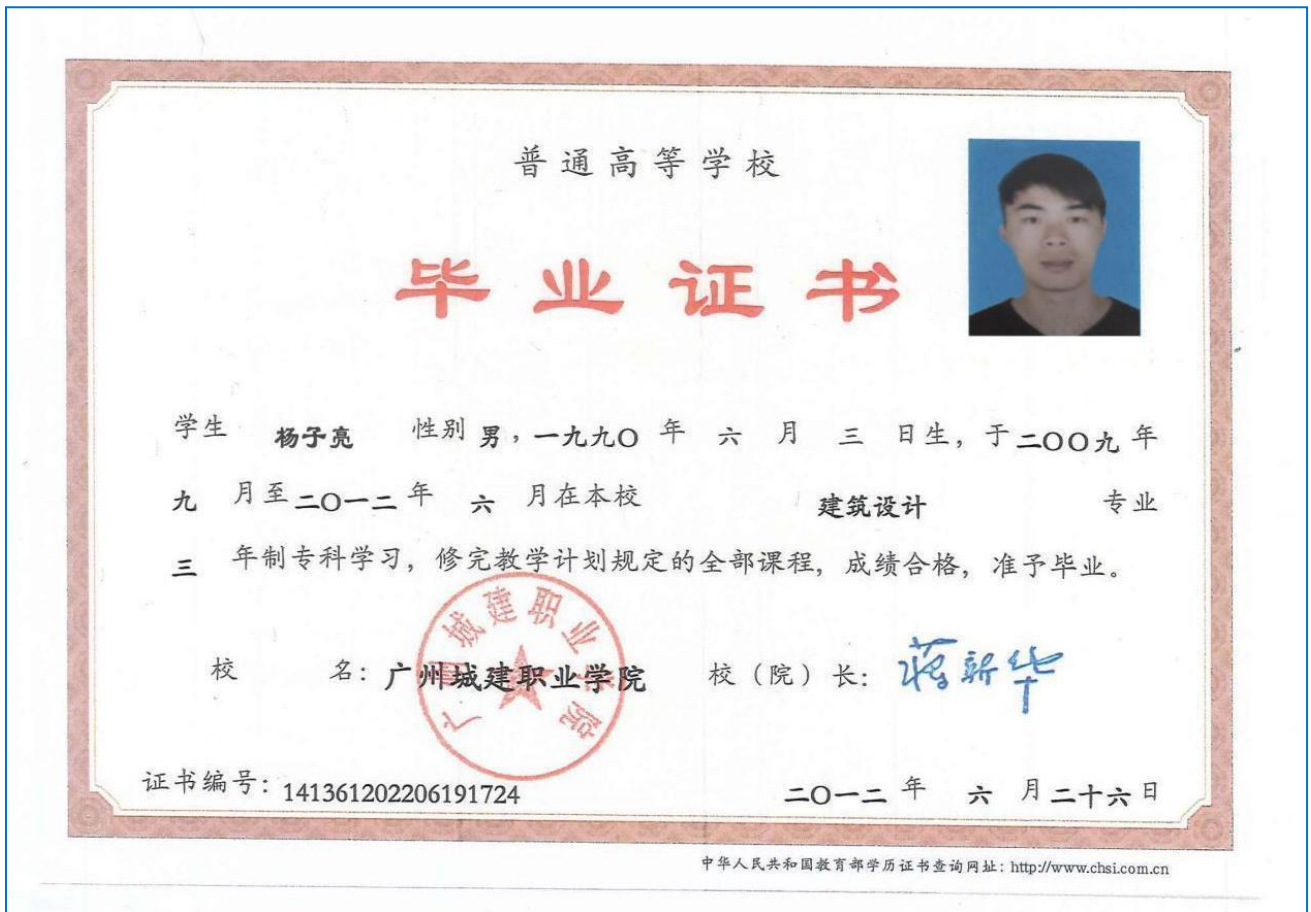 普通高等学校
毕业证书
学生 杨子亮 性别 男，一九九〇 年 六 月 三 日生，于二〇〇九 年
九 月至二〇一二 年 六 月在本校 建筑设计 专业
三 年制专科学习，修完教学计划规定的全部课程，成绩合格，准予毕业。
广州城建职业学院
校 名：广州城建职业学院 校（院）长：蒋新华
证书编号：141361202206191724 二〇一二 年 六 月二十六日
中华人民共和国教育部学历证书查询网址：http://www.chsi.com.cn